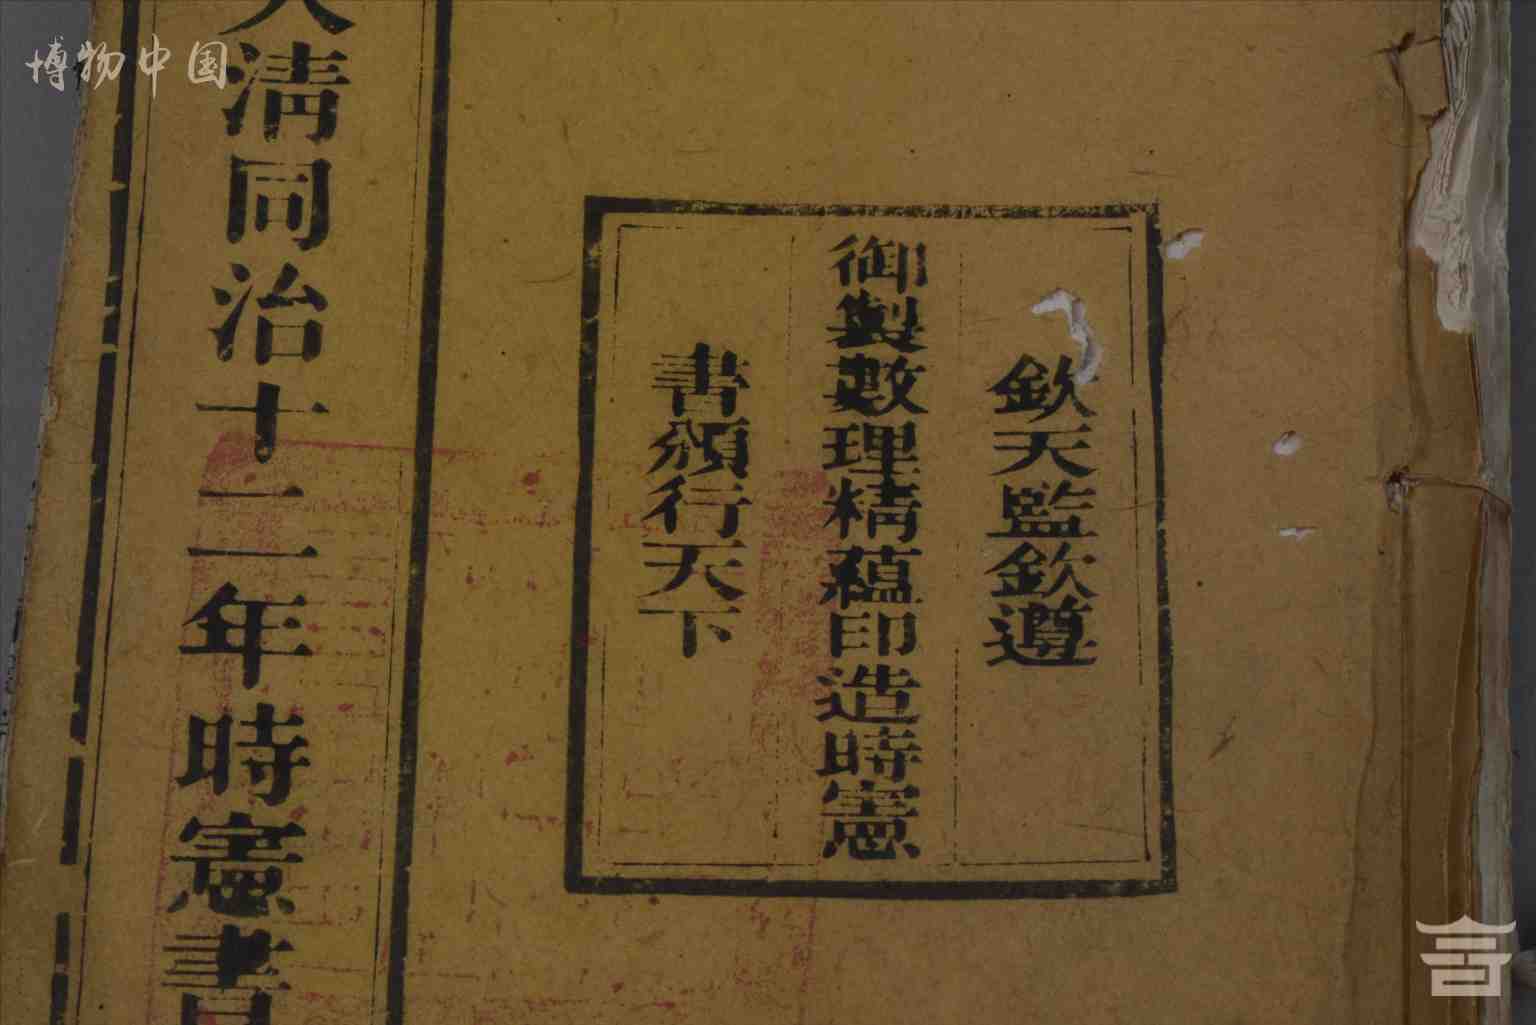 博物中国
欽天監欽遵
御製數理精蘊印造時憲
書頒行天下
大清同治十二年時憲書